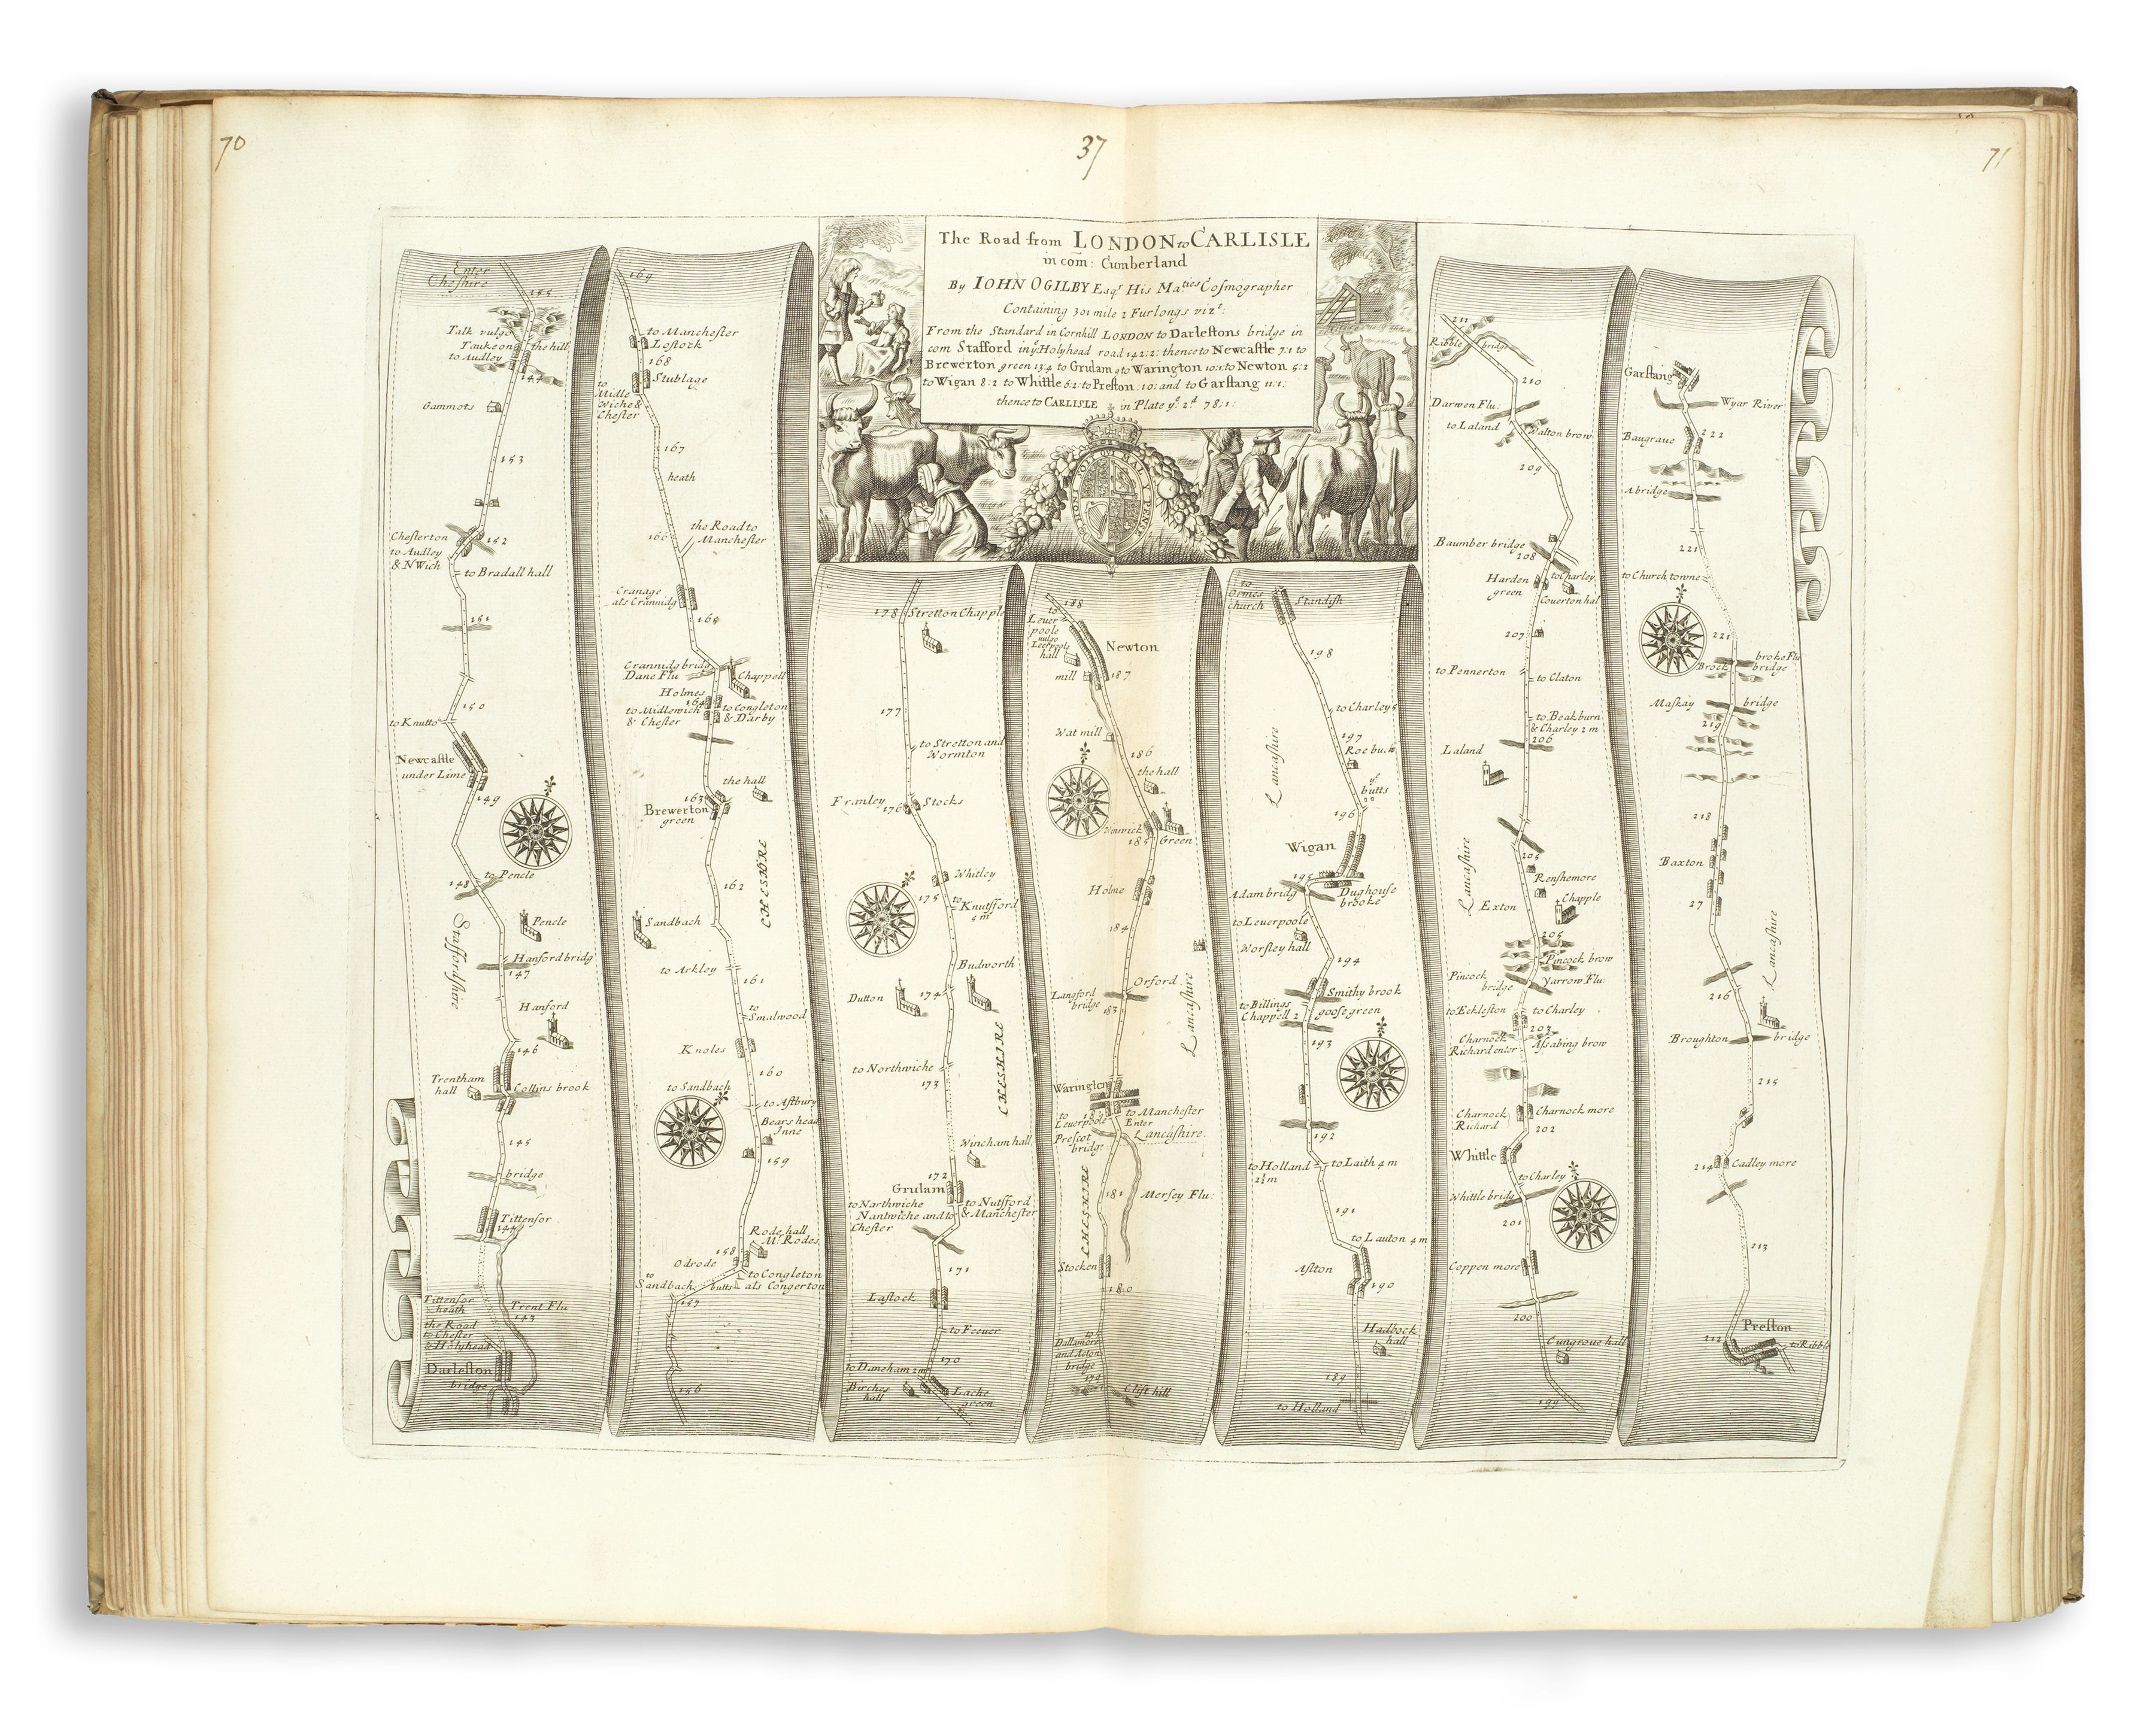 70
37
71
The Road from LONDON to CARLISLE
in com: Cumberland
By IOHN OGILBY Esqr. His Maties Cosmographer
Containing 301 mile 2 Furlongs vizt:
From the Standard in Cornhill LONDON to Darlestons bridge in
com Stafford in ye Holyhead road 142:2: thence to Newcastle 7:1 to
Brewerton green 13:4 to Grulam 9 to Warington 10:1 to Newton 5:2
to Wigan 8:2 to Whittle 6:2 to Preston: 10: and to Garstang 11:1:
thence to CARLISLE in Plate ye 2d 78:1:
Enter
Cheshire
155
Talk vulgo
Taukeon the hill
to Audley
154
Gammots
153
Chesterton
152
to Audley
& N Wich
to Bradall hall
151
150
to Knutto
Newcastle
under Lime
149
to Pencle
148
Pencle
Staffordshire
Hanford bridg
147
Hanford
146
Trentham
hall
Collins brook
145
bridge
Tittensor
144
Tittensor
heath
Trent Flu
143
the Road
to Chester
& Holyhead
Darleston
bridge
169
to Manchester
Lostock
168
Stublage
to
Midle
wiche &
Chester
167
heath
the Road to
Manchester
166
Cranage
als Crannidg
165
Crannidg bridg
Dane Flu
Chappell
Holmes
164
to Midlewich
& Chester
to Congleton
& Darby
the hall
163
Brewerton
green
CHESHIRE
162
Sandbach
to Arkley
161
to
Smalwood
Knoles
160
to Sandbach
to Astbury
Bears head
Inne
159
Rode hall
Mr. Rodes
158
Odrode
to
Sandbach
butts
to Congleton
als Congerton
157
156
178
Stretton Chapple
177
to Stretton and
Wormton
Franley
176
Stocks
Whitley
175
to
Knutsford
5 m
Budworth
Dutton
174
to Northwiche
173
CHESHIRE
Wincham hall
172
Grulam
to Northwiche
Nantwiche and to
Chester
to Nutsford
& Manchester
171
Lastock
to Feever
170
to Daneham 2m
Birches
hall
Lache
green
188
to
Leuer
poole
vulgo
Leerpoole
hall
Newton
mill
187
Wat mill
186
the hall
Winwick
185
Green
Holme
184
Orford
Lanoford
bridge
183
Lancashire
Warington
182
to
Leuerpoole
to Manchester
Enter
Lancashire
Prescot
bridg
181
Mersey Flu:
CHESHIRE
Stocken
180
to
Dallamore
and Acton
bridge
179
Clift hill
to
Ormes
church
Standish
198
to Charley 5
197
Roe buck
Lancashire
ye
butts
196
Wigan
195
Adam bridg
Dughouse
brooke
to Leuerpoole
Worsley hall
194
Smithy brook
to Billings
Chappell 2
goose green
193
192
to Holland
2½ m
to Laith 4 m
191
to Lauton 4 m
Aston
190
Hadbock
hall
189
to Holland
211
Ribble bridg
210
Darwen Flu:
to Laland
Walton brow
209
Baumber bridge
208
Harden
green
to Charley
Couerton hal
207
to Pennerton
to Claton
to Beakburn
& Charley 2 m
206
Laland
Lancashire
205
Renshemore
Exton
Chapple
205
Pincock brow
Pincock
bridge
Yarrow Flu
to Eckleston
to Charley
203
Charnock
Richard enter
Assabing brow
Charnock
Richard
Charnock more
202
Whittle
to Charley
Whittle bridg
201
Coppen more
200
Cungrove hall
199
Garstang
Wyar River
Baugraue
222
A bridge
221
to Church towne
221
Brock bridge
broke Flu
Maskay bridge
219
218
Baxton
27
216
Lancashire
Broughton bridge
215
214
Cadley more
213
Preston
212
to Ribble
7